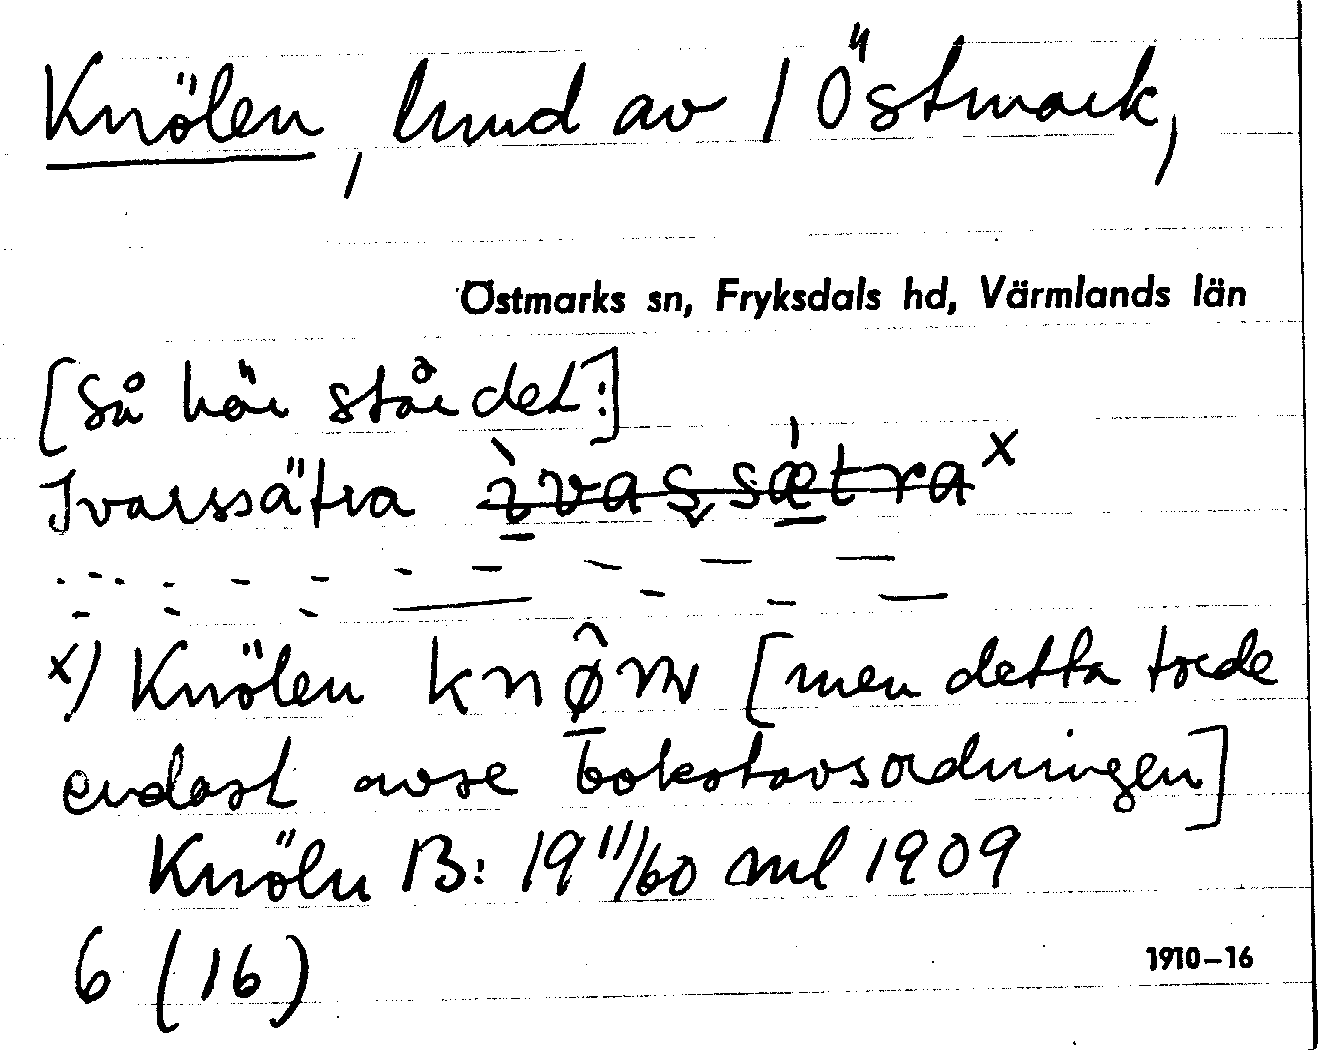 Knölen, hmd av 1 Östmark,
Östmarks sn, Fryksdals hd, Värmlands län
[Så här står det:]
Ivarssätra ìvaṣsǽtra x
x) Knölen knø̂ɳ [men detta torde
endast avse bokstavsordningen]
Knöln B: 19 11/60 ml 1909
6 (16)
1910-16